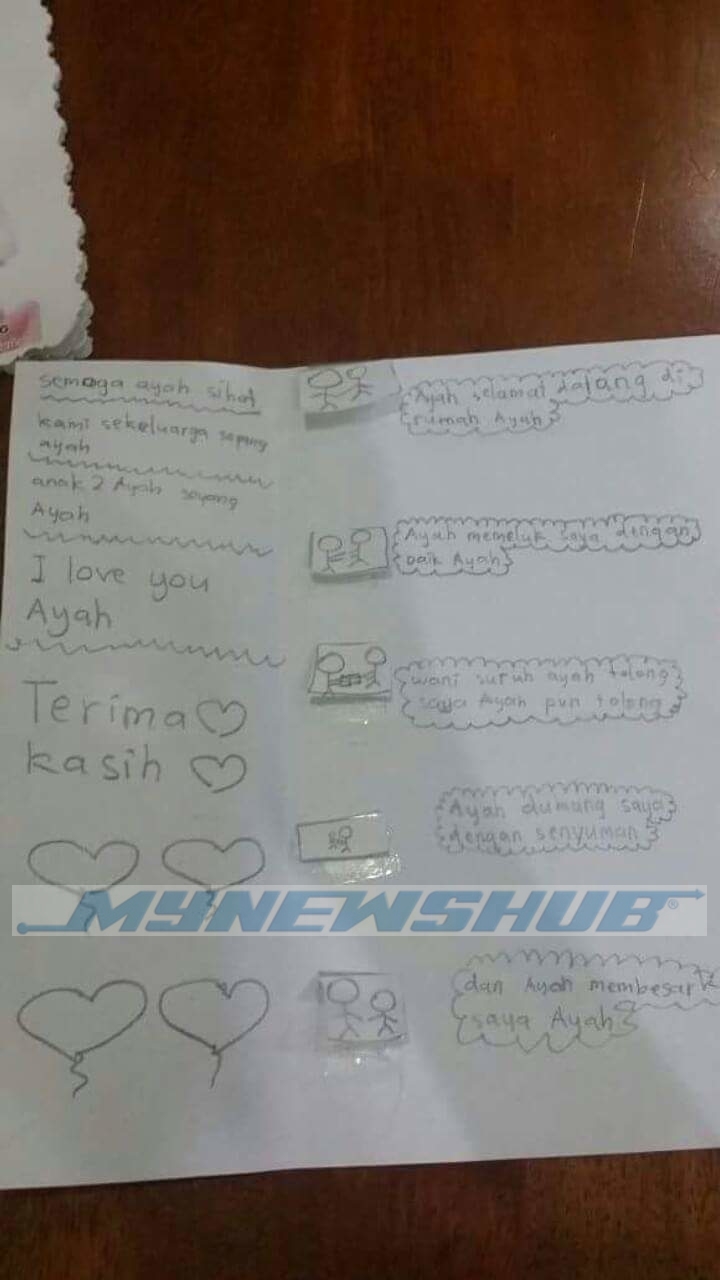 semoga ayah sihat
kami sekeluarga sayang
ayah
anak2 Ayah sayang
Ayah
I love you
Ayah
Terima
kasih
Ayah selamat datang di
rumah Ayah
Ayah memeluk saya dengan
baik Ayah
wani suruh ayah tolong
saya Ayah pun tolong
Ayah dumang saya
dengan senyuman
MYNEWSHUB®
dan Ayah membesark
saya Ayah